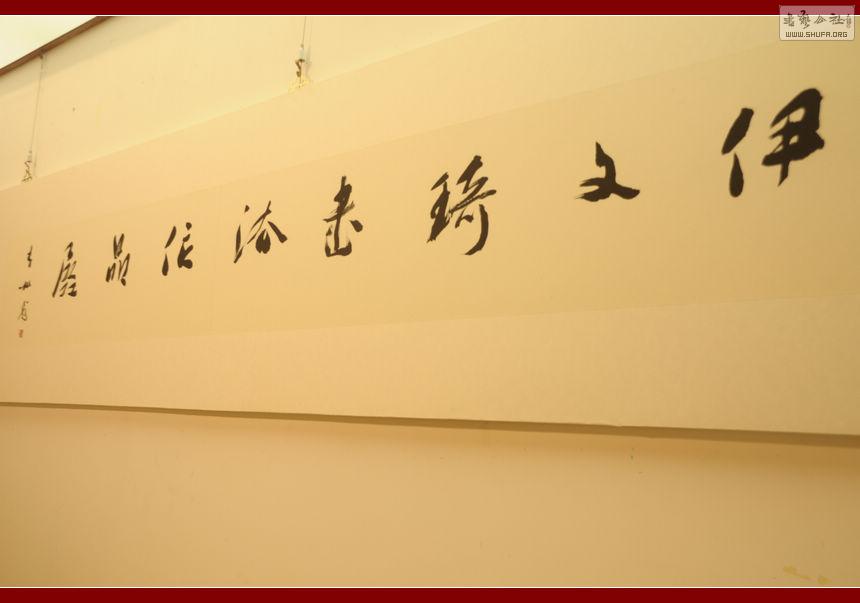 伊文琦書法作品展
書艺公社
WWW.SHUFA.ORG